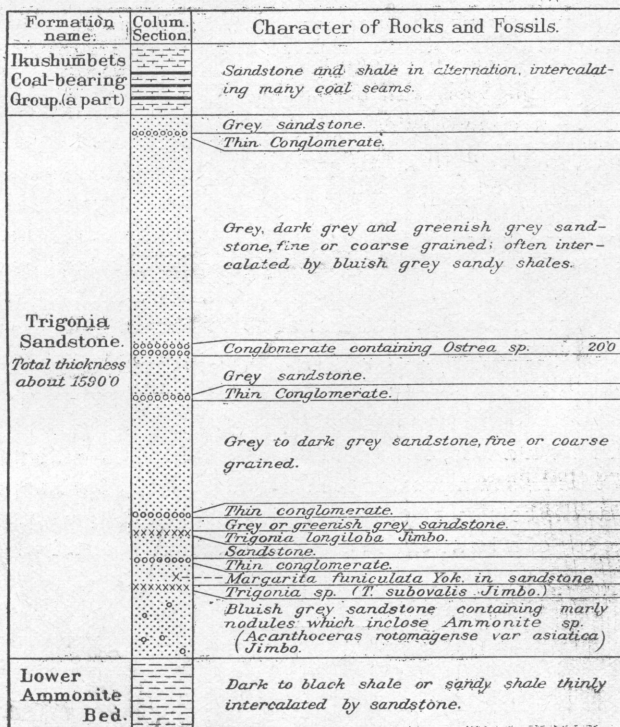 Formation name.
Colum. Section.
Character of Rocks and Fossils.
Ikushumbets
Coal-bearing
Group.(a part)
Sandstone and shale in alternation, intercalat-
ing many coal seams.
Trigonia
Sandstone.
Total thickness
about 1590'0
Grey sandstone.
Thin Conglomerate.
Grey, dark grey and greenish grey sand-
stone, fine or coarse grained; often inter-
calated by bluish grey sandy shales.
Conglomerate containing Ostrea sp. 20'0
Grey sandstone.
Thin Conglomerate.
Grey to dark grey sandstone, fine or coarse
grained.
Thin conglomerate.
Grey or greenish grey sandstone.
Trigonia longiloba Jimbo.
Sandstone.
Thin conglomerate.
Margarita funiculata Yok. in sandstone.
Trigonia sp. (T. subovalis Jimbo.)
Bluish grey sandstone containing marly
nodules which inclose Ammonite sp.
(Acanthoceras rotomagense var asiatica)
Jimbo.
Lower
Ammonite
Bed.
Dark to black shale or sandy shale thinly
intercalated by sandstone.